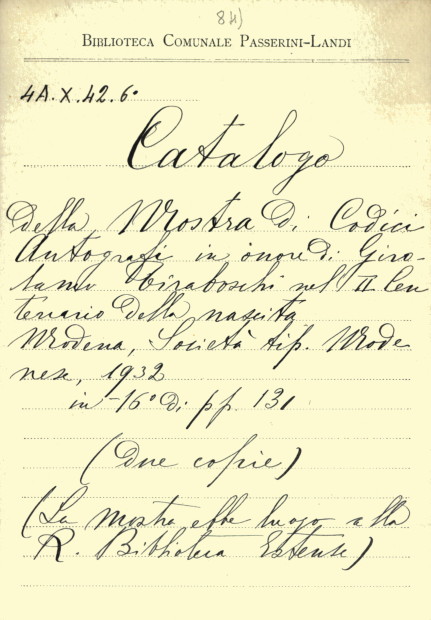 84)
BIBLIOTECA COMUNALE PASSERINI-LANDI
4A.X.42.6°
Catalogo
della Mostra di Codici
Autografi in onore di Giro-
lamo Tiraboschi nel II Cen
tenario della nascita
Modena, Società tip. Mode
nese, 1932
in-16° di pp. 131
(due copie)
(La mostra ebbe luogo alla
R. Biblioteca Estense)